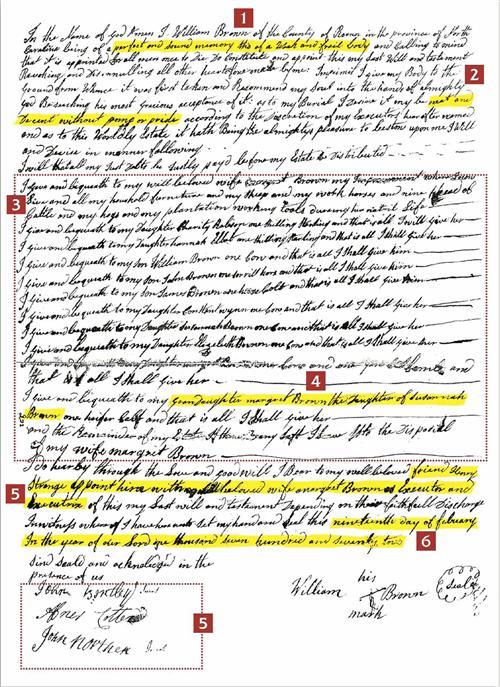 1
In the Name of God Amen I William Brown of the County of Rowan in the province of North
Carolina being of a perfect and sound memory tho of a Weak and frail body and Calling to mind
that it is appointed for all men once to Die Do Constitute and appoint this my Last Will and testament
Revoking and Disannulling all other heretofore made by me Imprimis I give my Body to the
2
Ground from Whence it was first taken and Recommend my Soul into the hands of almighty
God Beseaching his most Gracious acceptance of it as to my Burial I Desire it may be neat and
Decent without pomp or pride according to the Discration of my Executors hereafter named
and as to this Worldly Estate it hath Being the almightys pleasure to bestow upon me I Will
and Devise in manner following
I will that all my Just Debts be Justly payd before my Estate be Distributed
3
I give and bequeath to my well beloved wife margret Brown my
and all my household furniture and my Sheep and my work horses and nine head of
Cattle and my hogs and my plantation working Tools During her natural Life
I give and bequeath to my Daughter Charity one Shilling Starling and that is all I will give her
I give and bequeath to my Daughter hannah one Shilling Starling and that is all I Shall give her
I give and bequeath to my Son William Brown one Cow and that is all I Shall give him
I give and bequeath to my Son John Brown one and that is all I Shall give him
I give and bequeath to my Son James Brown one Colt and that is all I Shall give him
I give and bequeath to my Daughter wynn one Cow and that is all I Shall give her
I give and bequeath to my Daughter Susannah Brown one Cow and that is all I Shall give her
I give and bequeath to my Daughter Elizabeth Brown one Cow and that is all I Shall give her
I give and bequeath to my Daughter margret one Cow and one and
that is all I Shall give her
4
I give and bequeath to my granDaughter margret Brown the Daughter of Susannah
Brown one heifer Calf and that is all I Shall give her
and the Remainder of my Estate if there any Left I Leave to the Disposial
of my wife margret Brown
I do hearby through the Love and good will I Bear to my well beloved friend Henry
5
Strange appoint him with my beloved wife margret Brown as Executor and
Executrix of this my Last will and testament Depending on their faithfull Discharge
In witness whereof I have hereunto set my hand and Seal this nineteenth day of february
In the year of our Lord one thousand seven hundred and seventy two
6
Sind Seald and acknoledged in the
presence of us
John Bentley Jurat
Agnes Cotten
John Northen Jurat
5
William his Brown Seal
mark